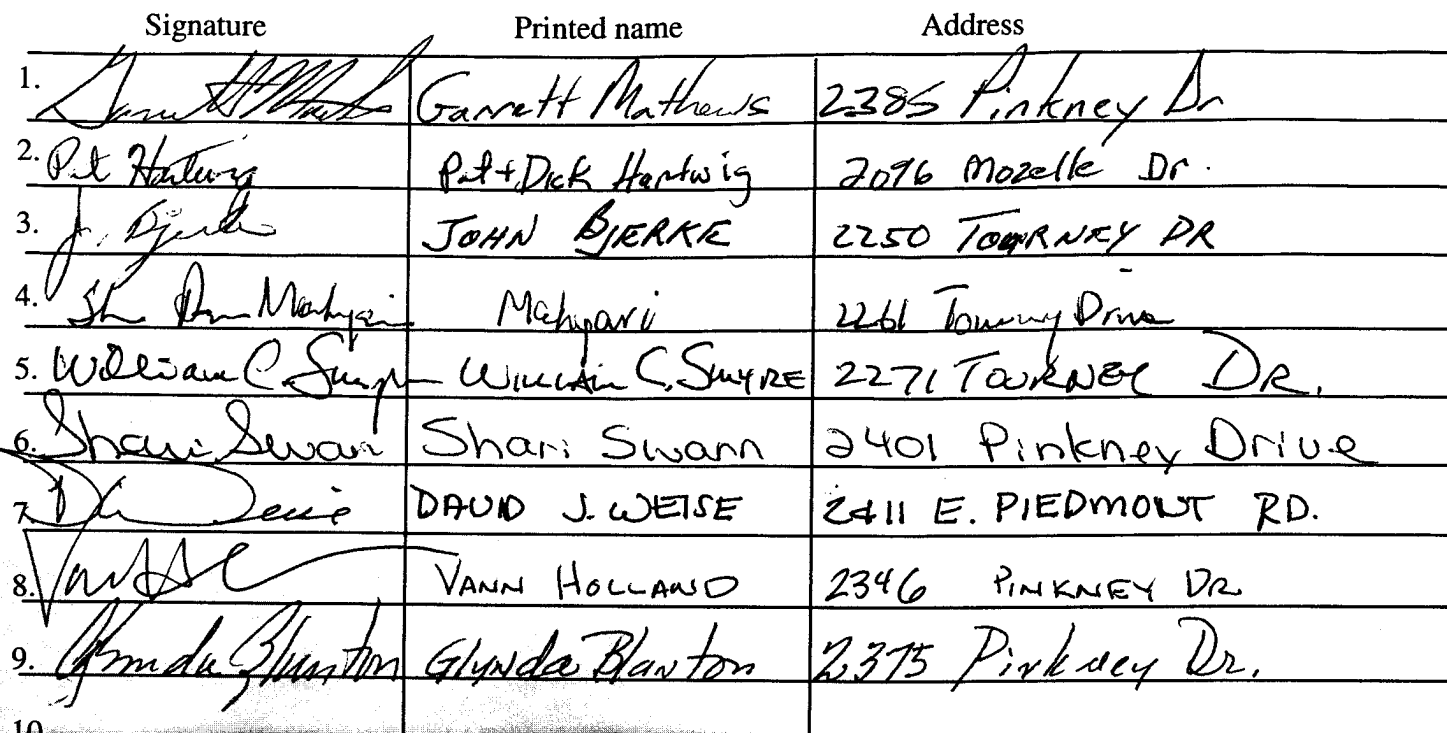 Signature Printed name Address
1. Garrett Mathews 2385 Pinkney Dr
2. Pat Hartwig Pat + Dick Hartwig 2096 Mozelle Dr.
3. J. Bjerke JOHN BJERKE 2250 TOURNEY DR
4. Mahyari Mahyari 2261 Tourney Drive
5. William C. Smyre WILLIAM C. SMYRE 2271 TOURNEY DR.
6. Shari Swann Shari Swann 2401 Pinkney Drive
7. DAVID J. WEISE 2411 E. PIEDMONT RD.
8. VANN HOLLAND 2346 PINKNEY DR
9. Glynda Blanton Glynda Blanton 2375 Pinkney Dr.
10